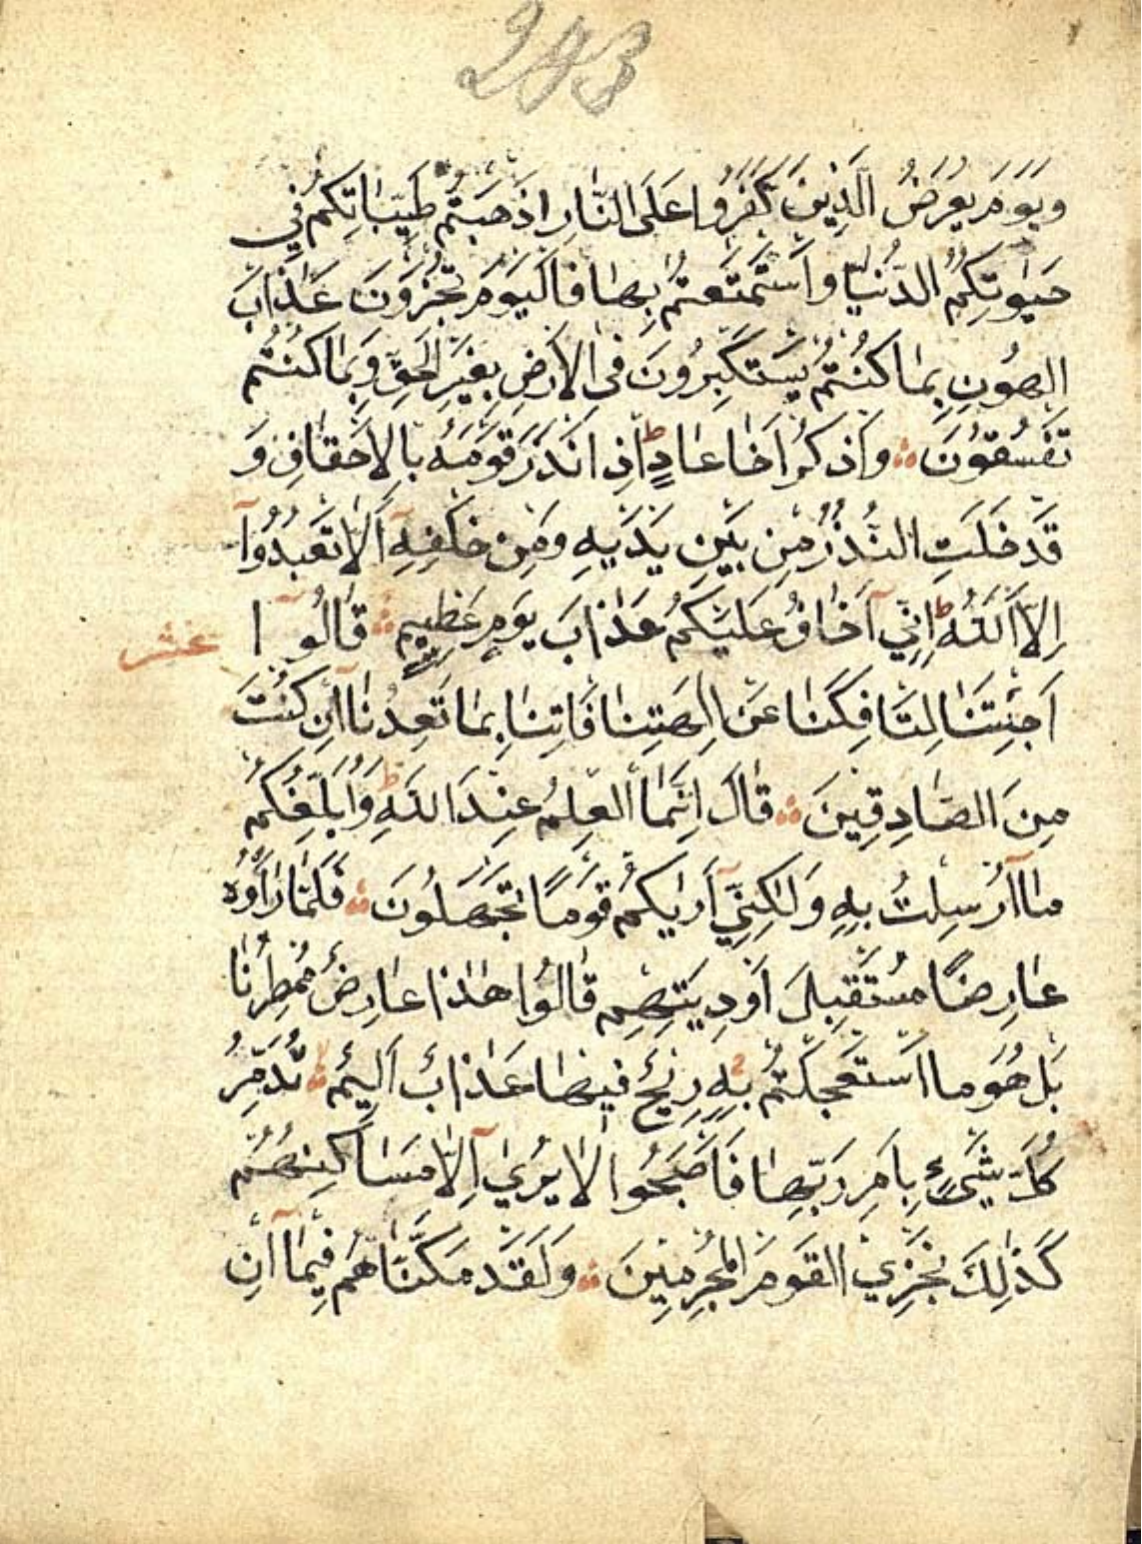 293
وَيَوْمَ يُعْرَضُ الَّذِينَ كَفَرُوا عَلَى النَّارِ اَذْهَبْتُمْ طَيِّبَاتِكُمْ فِي
حَيٰوتِكُمُ الدُّنْيَا وَاسْتَمْتَعْتُمْ بِهَا فَالْيَوْمَ تُجْزَوْنَ عَذَابَ
الْهُونِ بِمَا كُنْتُمْ تَسْتَكْبِرُونَ فِي الْاَرْضِ بِغَيْرِ الْحَقِّ وَبِمَا كُنْتُمْ
تَفْسُقُونَ ۞ وَاذْكُرْ اَخَا عَادٍ ط اِذْ اَنْذَرَ قَوْمَهُ بِالْاَحْقَافِ وَ
قَدْ خَلَتِ النُّذُرُ مِنْ بَيْنِ يَدَيْهِ وَمِنْ خَلْفِهِٓ اَلَّا تَعْبُدُوٓا
اِلَّا اللّٰهَ ط اِنِّيٓ اَخَافُ عَلَيْكُمْ عَذَابَ يَوْمٍ عَظِيمٍ ۞ قَالُوٓا
عشر
اَجِئْتَنَا لِتَاْفِكَنَا عَنْ اٰلِهَتِنَا فَاْتِنَا بِمَا تَعِدُنَٓا اِنْ كُنْتَ
مِنَ الصَّادِقِينَ ۞ قَالَ اِنَّمَا الْعِلْمُ عِنْدَ اللّٰهِ ط وَاُبَلِّغُكُمْ
مَٓا اُرْسِلْتُ بِهِ وَلٰكِنِّيٓ اَرٰيكُمْ قَوْمًا تَجْهَلُونَ ۞ فَلَمَّا رَاَوْهُ
عَارِضًا مُسْتَقْبِلَ اَوْدِيَتِهِمْ قَالُوا هٰذَا عَارِضٌ مُمْطِرُنَا
بَلْ هُوَ مَا اسْتَعْجَلْتُمْ بِهِ رِيحٌ فِيهَا عَذَابٌ اَلِيمٌ ۞ تُدَمِّرُ
كُلَّ شَيْءٍ بِاَمْرِ رَبِّهَا فَاَصْبَحُوا لَا يُرٰىٓ اِلَّا مَسَاكِنُهُمْ
كَذٰلِكَ نَجْزِي الْقَوْمَ الْمُجْرِمِينَ ۞ وَلَقَدْ مَكَّنَّاهُمْ فِيمَٓا اِنْ